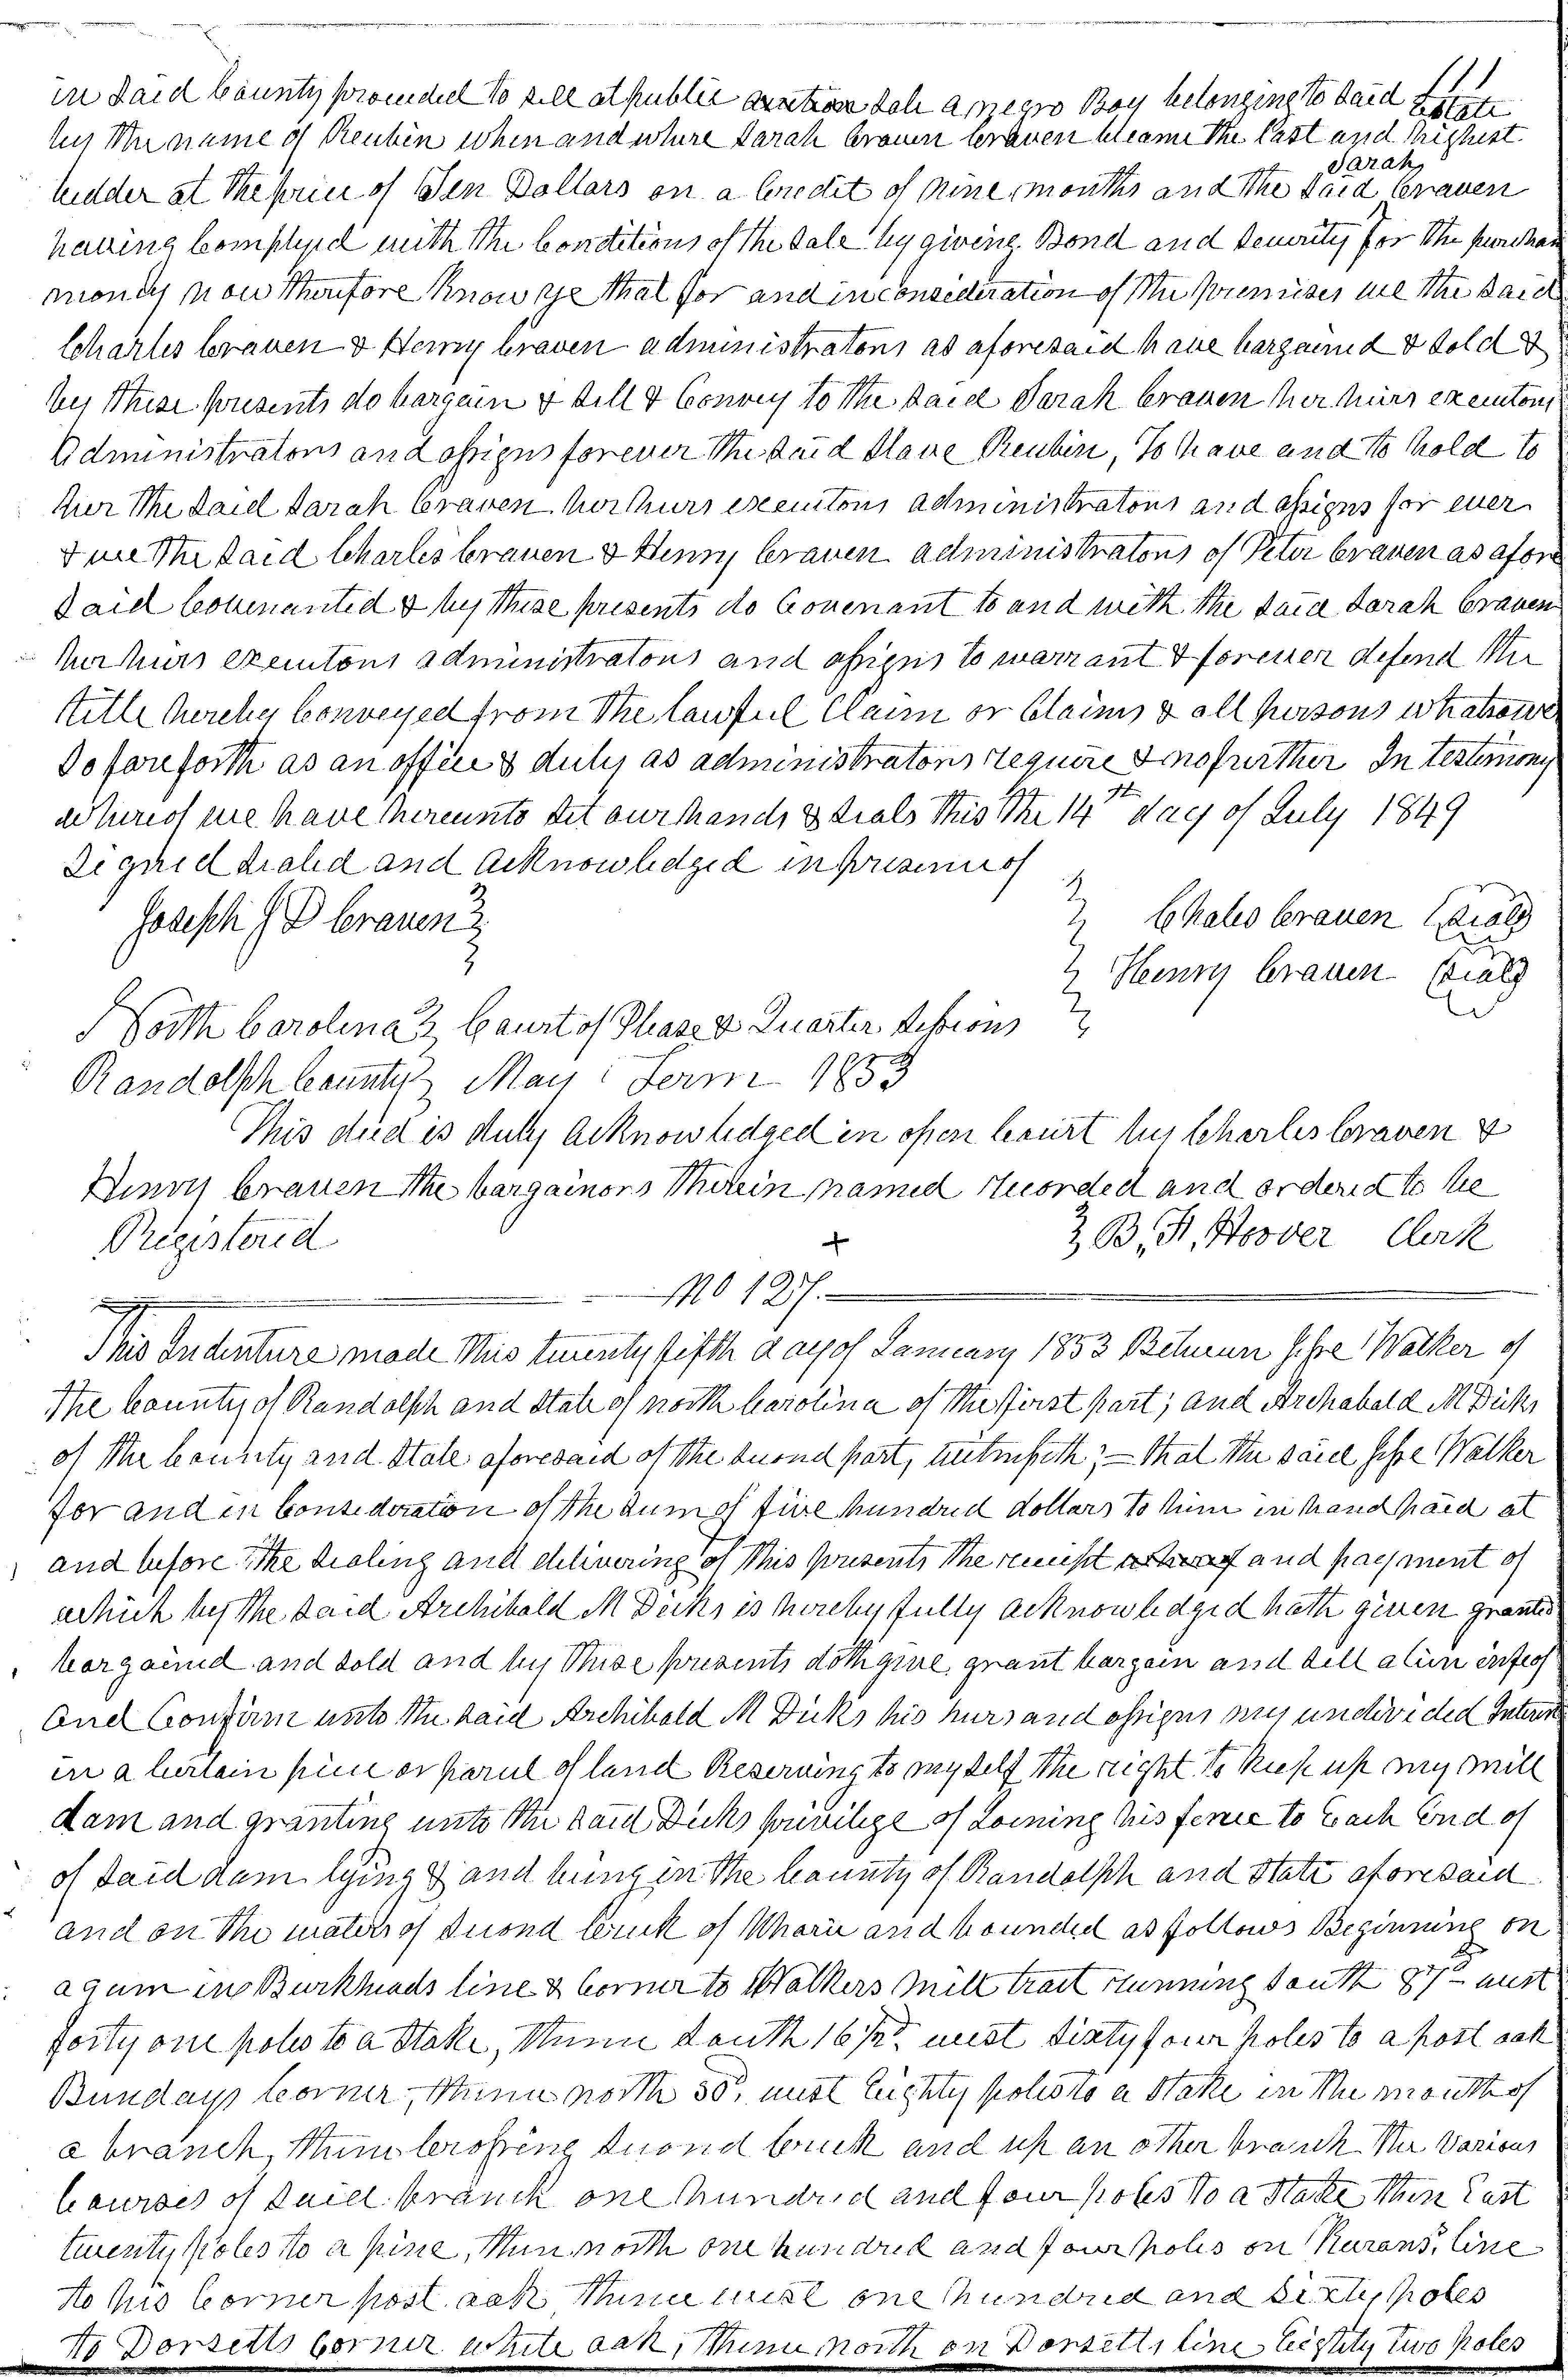 111
in Said County proceeded to sell at public auction Sale a negro Boy belonging to Said Estate
by the name of Reubin when and where Sarah Craven Craven became the last and highest
bidder at the price of Ten Dollars on a Credit of nine months and the Said Sarah Craven
having Complyed with the Conditions of the Sale by giving Bond and Security for the purchase
money now therefore Know ye that for and in consideration of the premises we the Said
Charles Craven & Henry Craven administrators as aforesaid have bargained & Sold &
by these presents do bargain & Sell & Convey to the Said Sarah Craven her heirs executors
Administrators and assigns forever the Said Slave Reubin, To have and to hold to
her the Said Sarah Craven her heirs executors administrators and assigns for ever
& we the Said Charles Craven & Henry Craven administrators of Peter Craven as afore
Said Covenanted & by these presents do Covenant to and with the Said Sarah Craven
her heirs executors administrators and assigns to warrant & forever defend the
title hereby Conveyed from the lawful Claim or Claims & all persons whatsoever
So fare forth as an office & duty as administrators require & no further In testimony
whereof we have hereunto Set our hands & Seals this the 14th day of July 1849
Signed Sealed and acknowledged in presence of
Joseph J D Craven
Chales Craven (Seal)
Henry Craven (Seal)
North Carolina Court of Please & Quarter Sessions
Randolph County May Term 1853
This deed is duly acknowledged in open Court by Charles Craven &
Henry Craven the bargainors therein named recorded and ordered to be
Registered
B. F. Hoover Clerk
No 127.
This Indenture made this twenty fifth day of January 1853 Between Jesse Walker of
the County of Randolph and State of north Carolina of the first part; and Archabald M Dicks
of the County and State aforesaid of the Second part, witnesseth; - that the said Jesse Walker
for and in Consideraton of the Sum of five hundred dollars to him in hand paid at
and before the Sealing and delivering of this presents the receipt whereof and payment of
which by the Said Archibald M Dicks is hereby fully acknowledged hath given granted
bargained and Sold and by these presents doth give, grant bargain and Sell alien enfeof
and Confirm unto the Said Archibald M Dicks his heirs and assigns my undivided Interest
in a Certain piece or parcel of land Reserving to myself the right to keep up my mill
dam and granting unto the Said Dicks privilege of Joining his fence to Each End of
of Said dam lying & and being in the County of Randolph and State aforesaid
and on the waters of Second Creek of Uharie and bounded as follows Beginning on
a gum in Burkheads line & Corner to Walkers Mill tract running South 87° west
forty one poles to a Stake, thence South 16½° west Sixty four poles to a post oak
Bundays Corner, thence north 50° west Eighty poles to a Stake in the mouth of
a branch, thence Crossing Second Creek and up an other branch the various
Courses of Said branch one hundred and four poles to a Stake then East
twenty poles to a pine, then north one hundred and four poles on Kurans, line
to his Corner post oak thence west one hundred and Sixty poles
to Dorsetts Corner white oak, thence north on Dorsetts line Eightty two poles